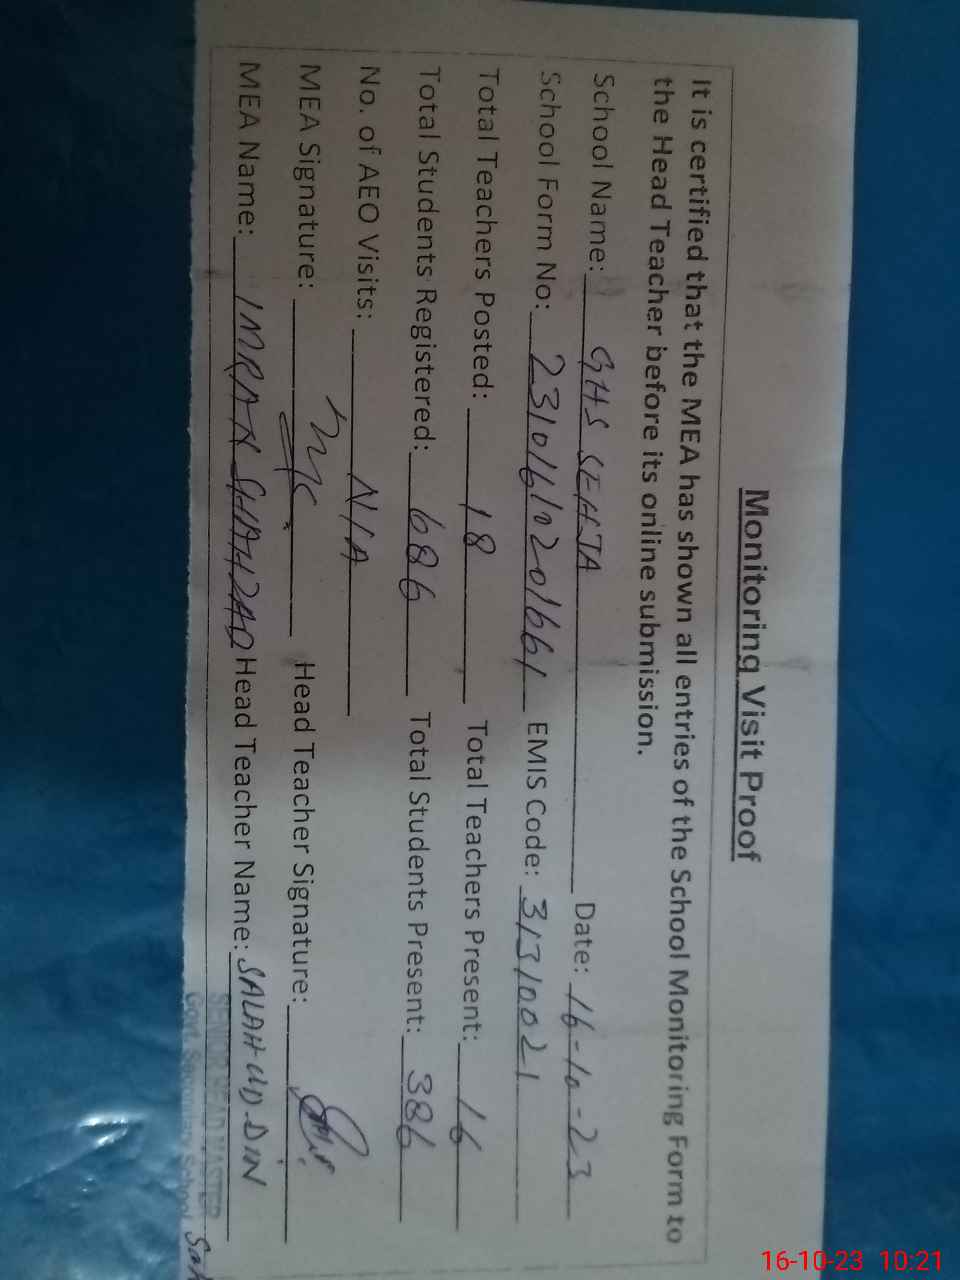 Monitoring Visit Proof
It is certified that the MEA has shown all entries of the School Monitoring Form to
the Head Teacher before its online submission.
School Name: GHS SEHJA Date: 16-10-23
School Form No: EMIS Code: 31310021
Total Teachers Posted: 18 Total Teachers Present: 16
Total Students Registered: 686 Total Students Present: 386
No. of AEO Visits: N/A
MEA Signature: Head Teacher Signature:
MEA Name: IMRAN SHAHZAD Head Teacher Name: SALAH UD DIN
SENIOR HEAD MASTER
Govt. Secondary School
16-10-23 10:21